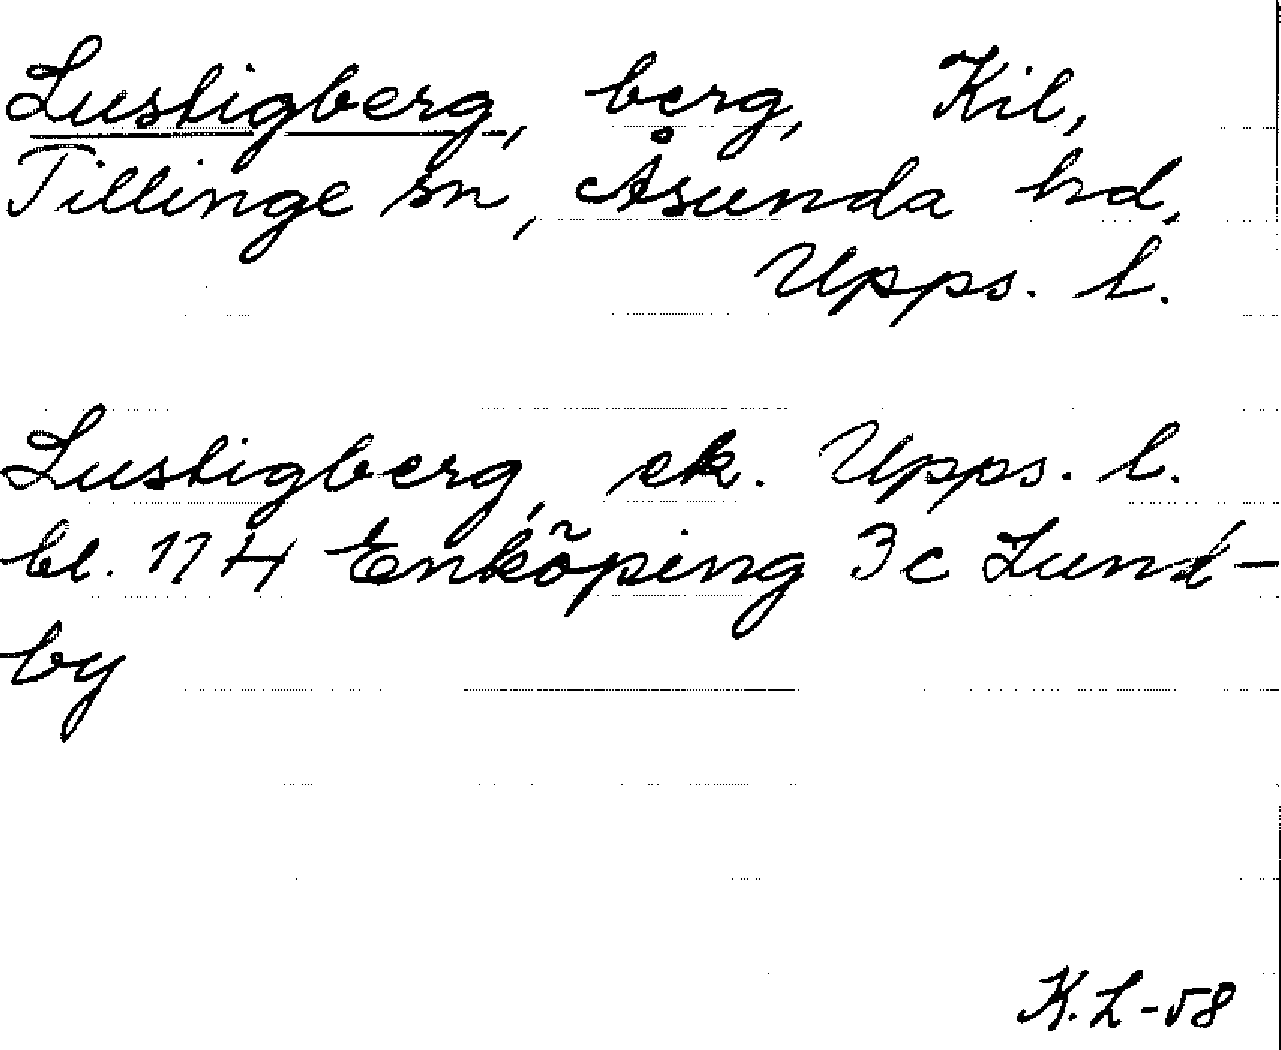 Lustigberg, berg, Kil,
Tillinge sn, Åsunda hd,
Upps. l.
Lustigberg, ek. Upps. l.
bl. 11 H Enköping 3c Lund-
by
K. L-58